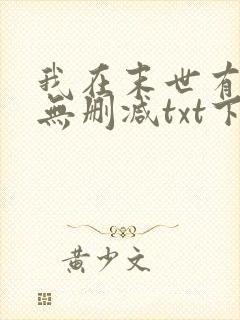 我在末世有
無删减txt下
黄少文